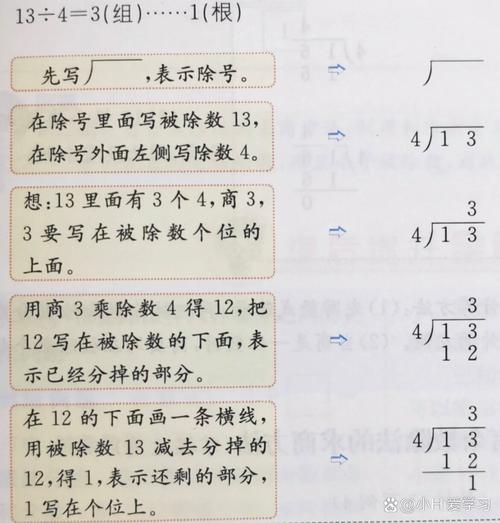 13÷4=3(组)……1(根)
先写厂,表示除号。
在除号里面写被除数13,
在除号外面左侧写除数4。
4 1 3
想:13里面有3个4,商3,
3要写在被除数个位的
上面。
3
4 1 3
用商3乘除数4得12,把
12写在被除数的下面,表
示已经分掉的部分。
3
4 1 3
1 2
在12的下面画一条横线,
用被除数13减去分掉的
12,得1,表示还剩的部分,
1写在个位上。
3
4 1 3
1 2
1
@小Hi爱学习